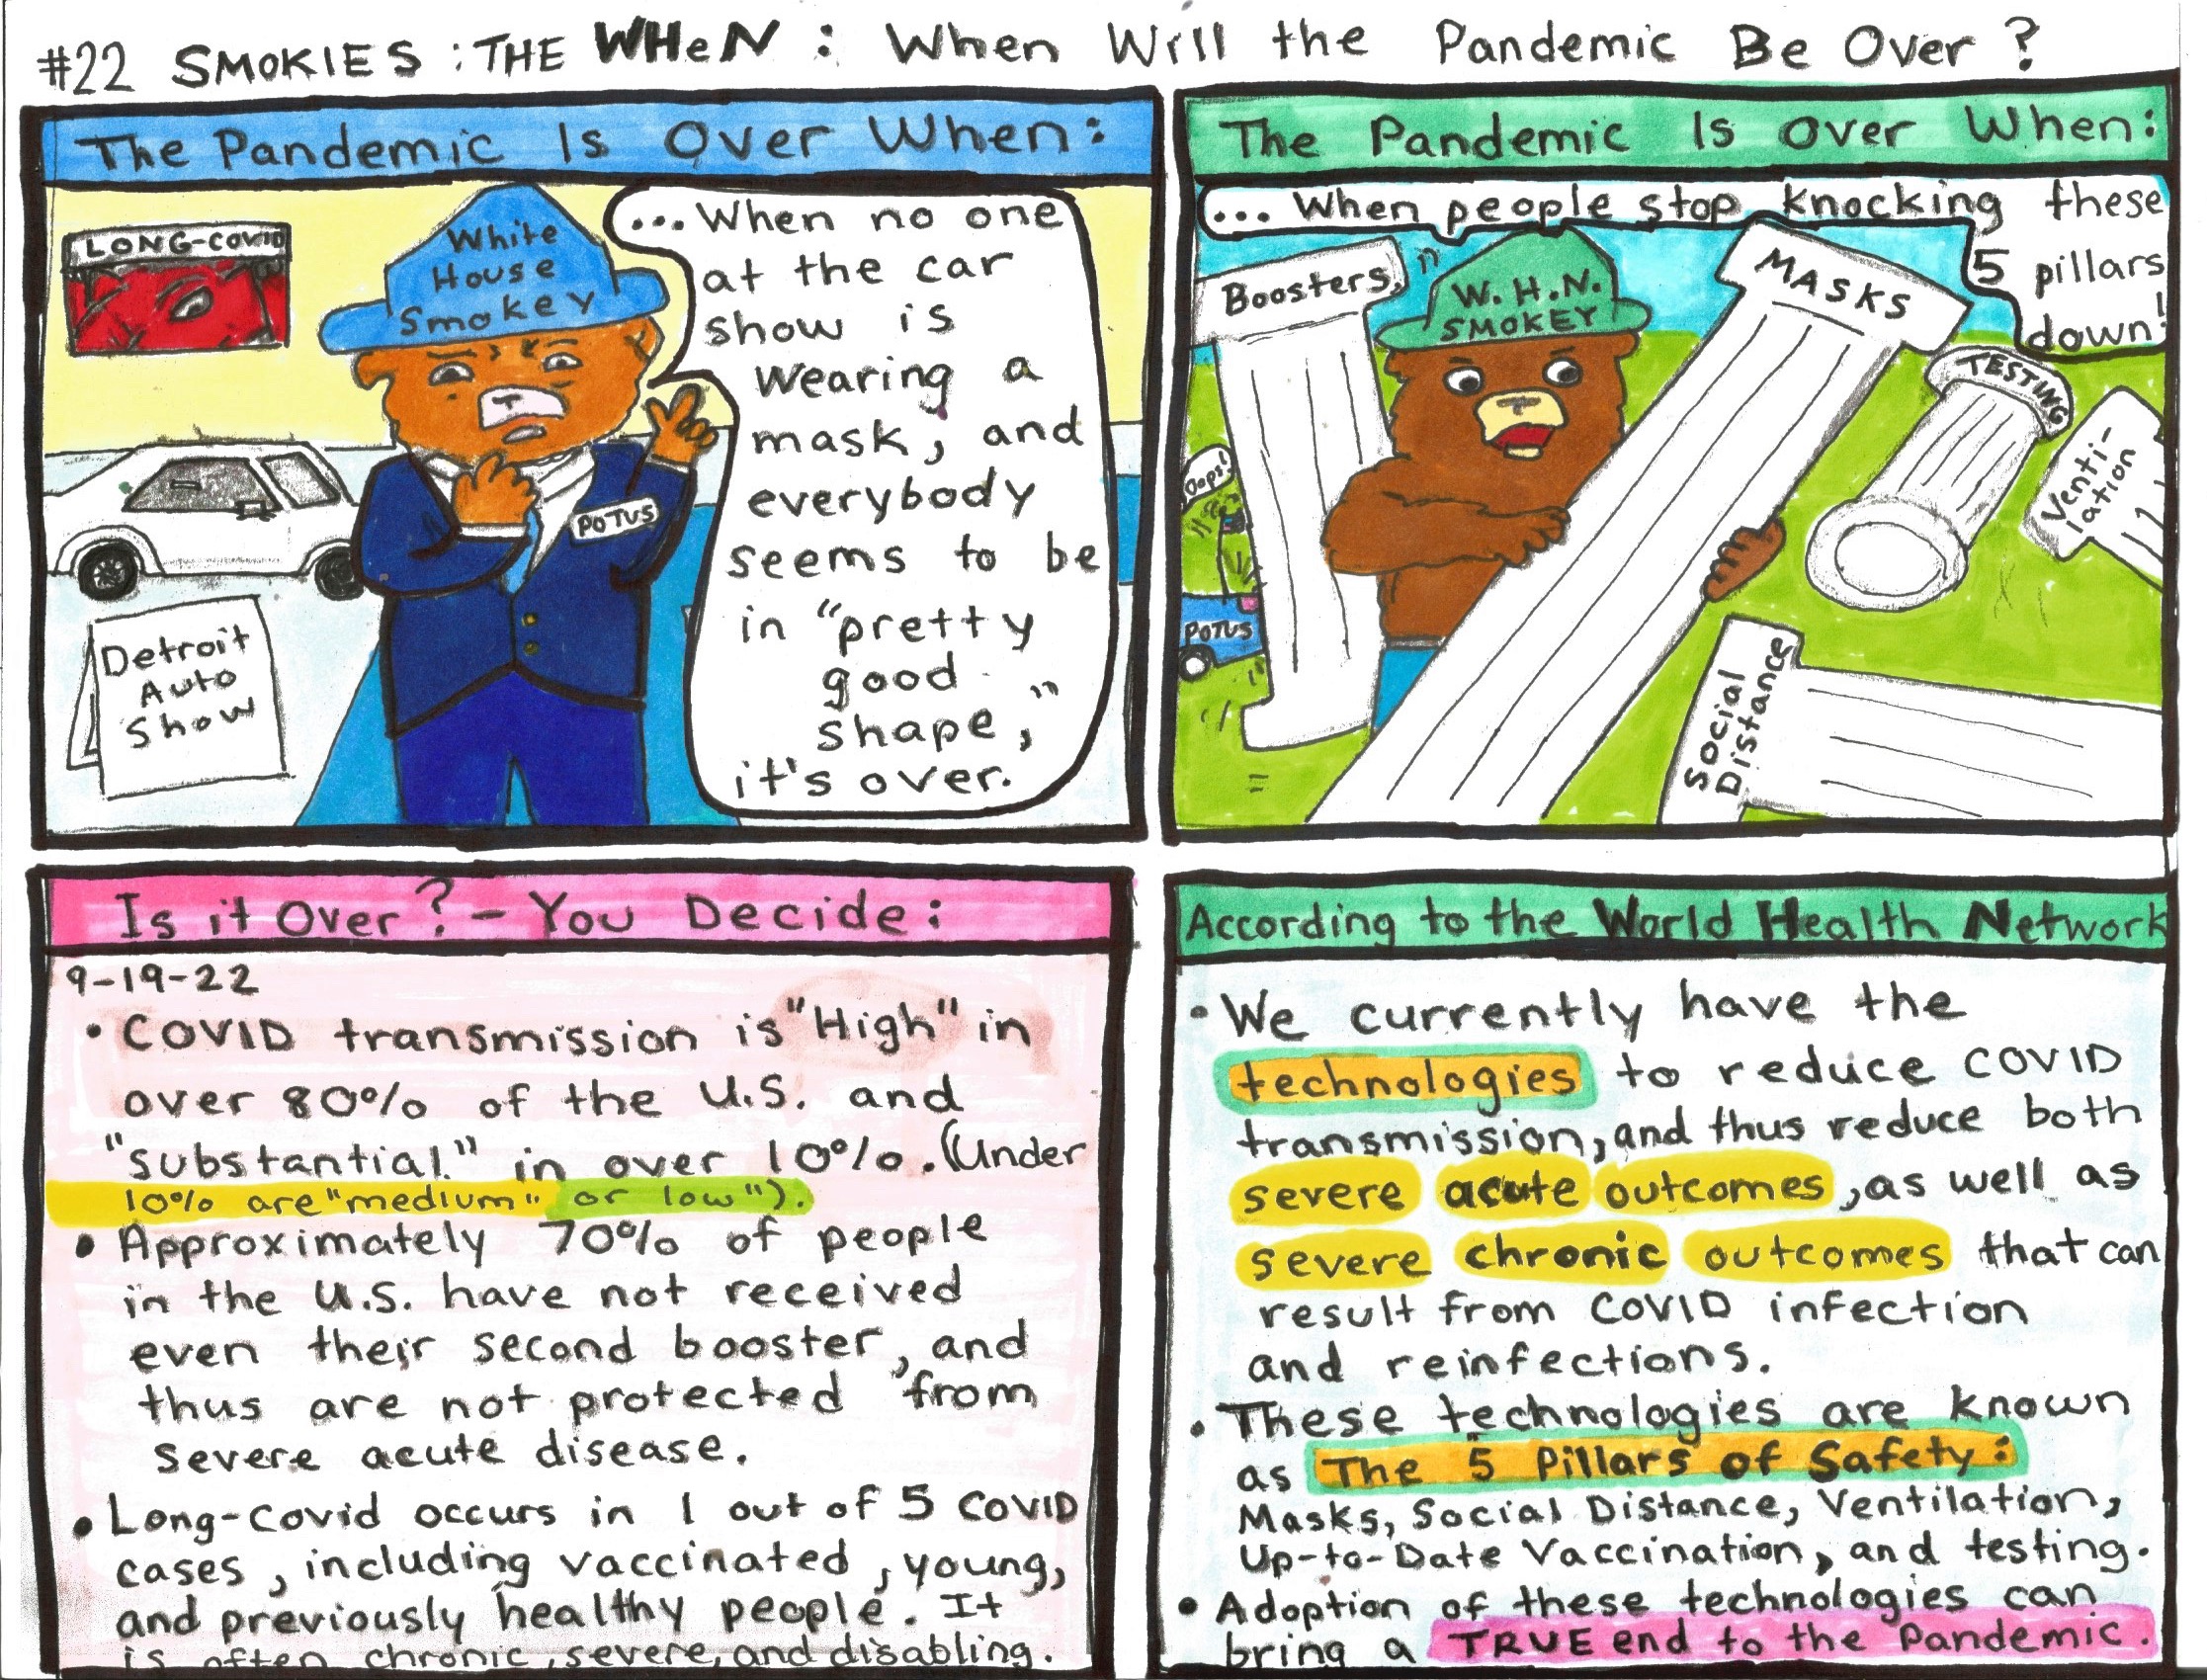 #22 SMOKIES: THE WHeN: When Will the Pandemic Be Over?
The Pandemic Is Over When:
LONG-COVID
White
House
Smokey
POTUS
Detroit
Auto
Show
...When no one
at the car
show is
wearing a
mask, and
everybody
seems to be
in "pretty
good
shape,"
it's over.
The Pandemic Is Over When:
... When people stop knocking these
5 pillars
down!
Boosters
W.H.N.
SMOKEY
MASKS
TESTING
Venti-
lation
Oops!
POTUS
Social
Distance
Is it Over? - You Decide:
9-19-22
• COVID transmission is "High" in
over 80% of the U.S. and
"substantial" in over 10%. (Under
10% are "medium" or low").
• Approximately 70% of people
in the U.S. have not received
even their second booster, and
thus are not protected from
severe acute disease.
• Long-Covid occurs in 1 out of 5 COVID
cases, including vaccinated, young,
and previously healthy people. It
is often chronic, severe, and disabling.
According to the World Health Network
• We currently have the
technologies to reduce COVID
transmission, and thus reduce both
severe acute outcomes, as well as
severe chronic outcomes that can
result from COVID infection
and reinfections.
• These technologies are known
as The 5 Pillars of Safety:
Masks, Social Distance, Ventilation,
Up-to-Date Vaccination, and testing.
• Adoption of these technologies can
bring a TRUE end to the Pandemic.